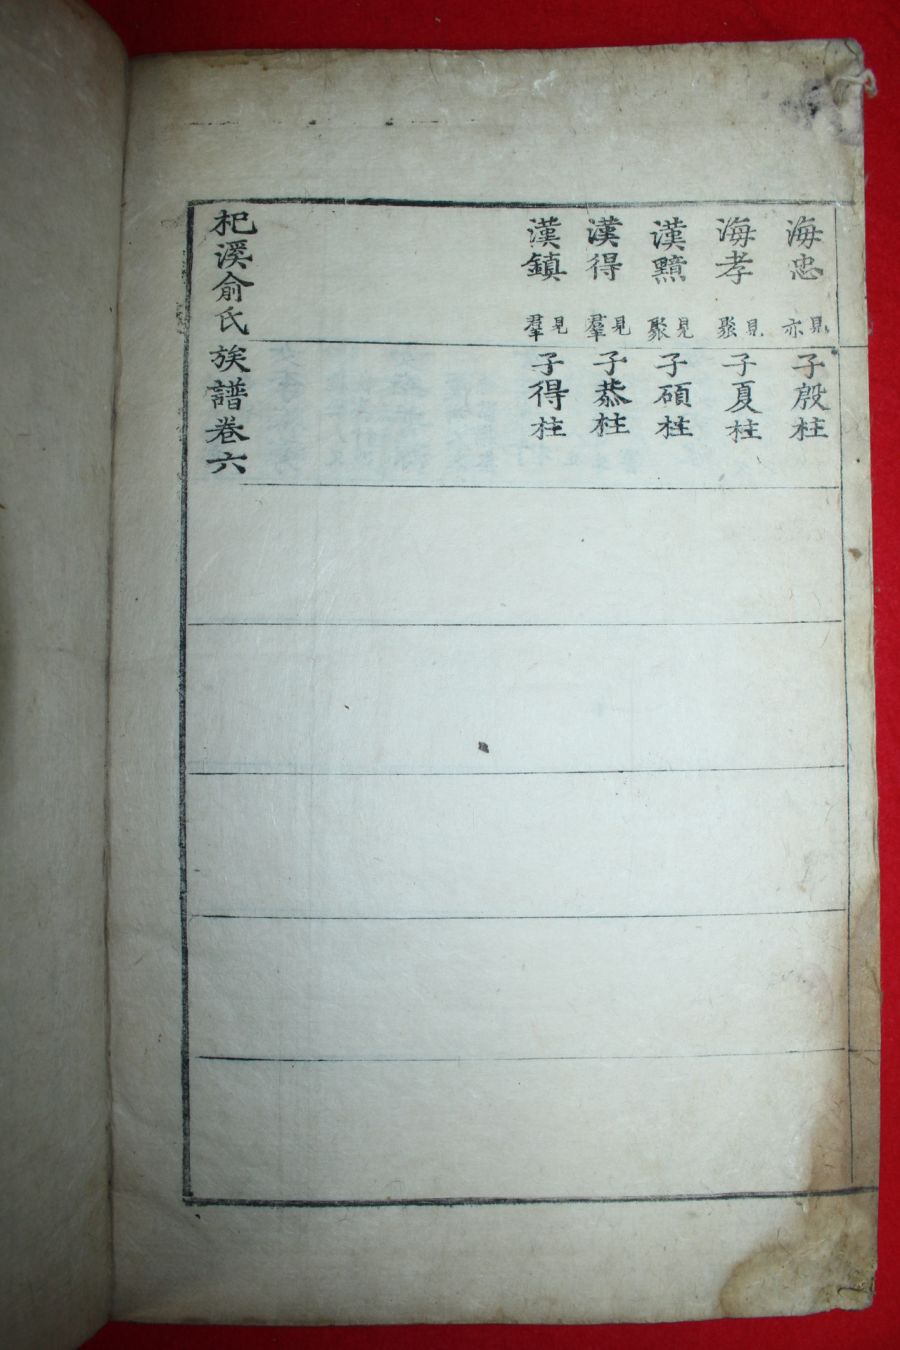 海忠 見亦 子殷柱
海孝 見聚 子夏柱
漢黙 見聚 子碩柱
漢得 見羣 子恭柱
漢鎮 見羣 子得柱
杞溪俞氏族譜卷六